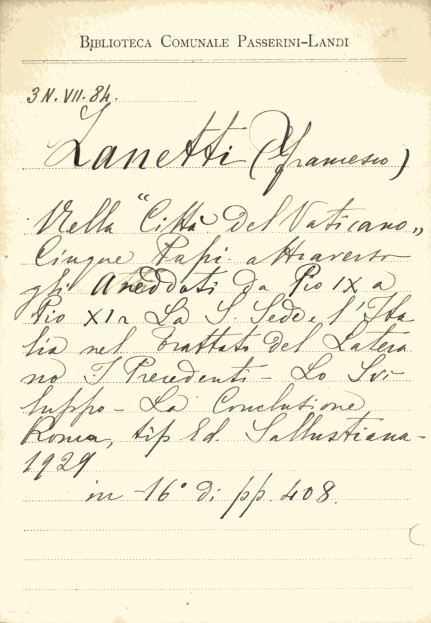 BIBLIOTECA COMUNALE PASSERINI-LANDI
3 N. VII. 84.
Zanetti (Francesco)
Nella "Città del Vaticano"
Cinque Papi attraverso
gli Aneddoti da Pio IX a
Pio XI La S. Sede e l'Ita
lia nel Trattato del Latera
no I Precedenti - Lo Svi
luppo - La Conclusione
Roma, tip. Ed. Sallustiana -
1929
in - 16° di pp. 408.